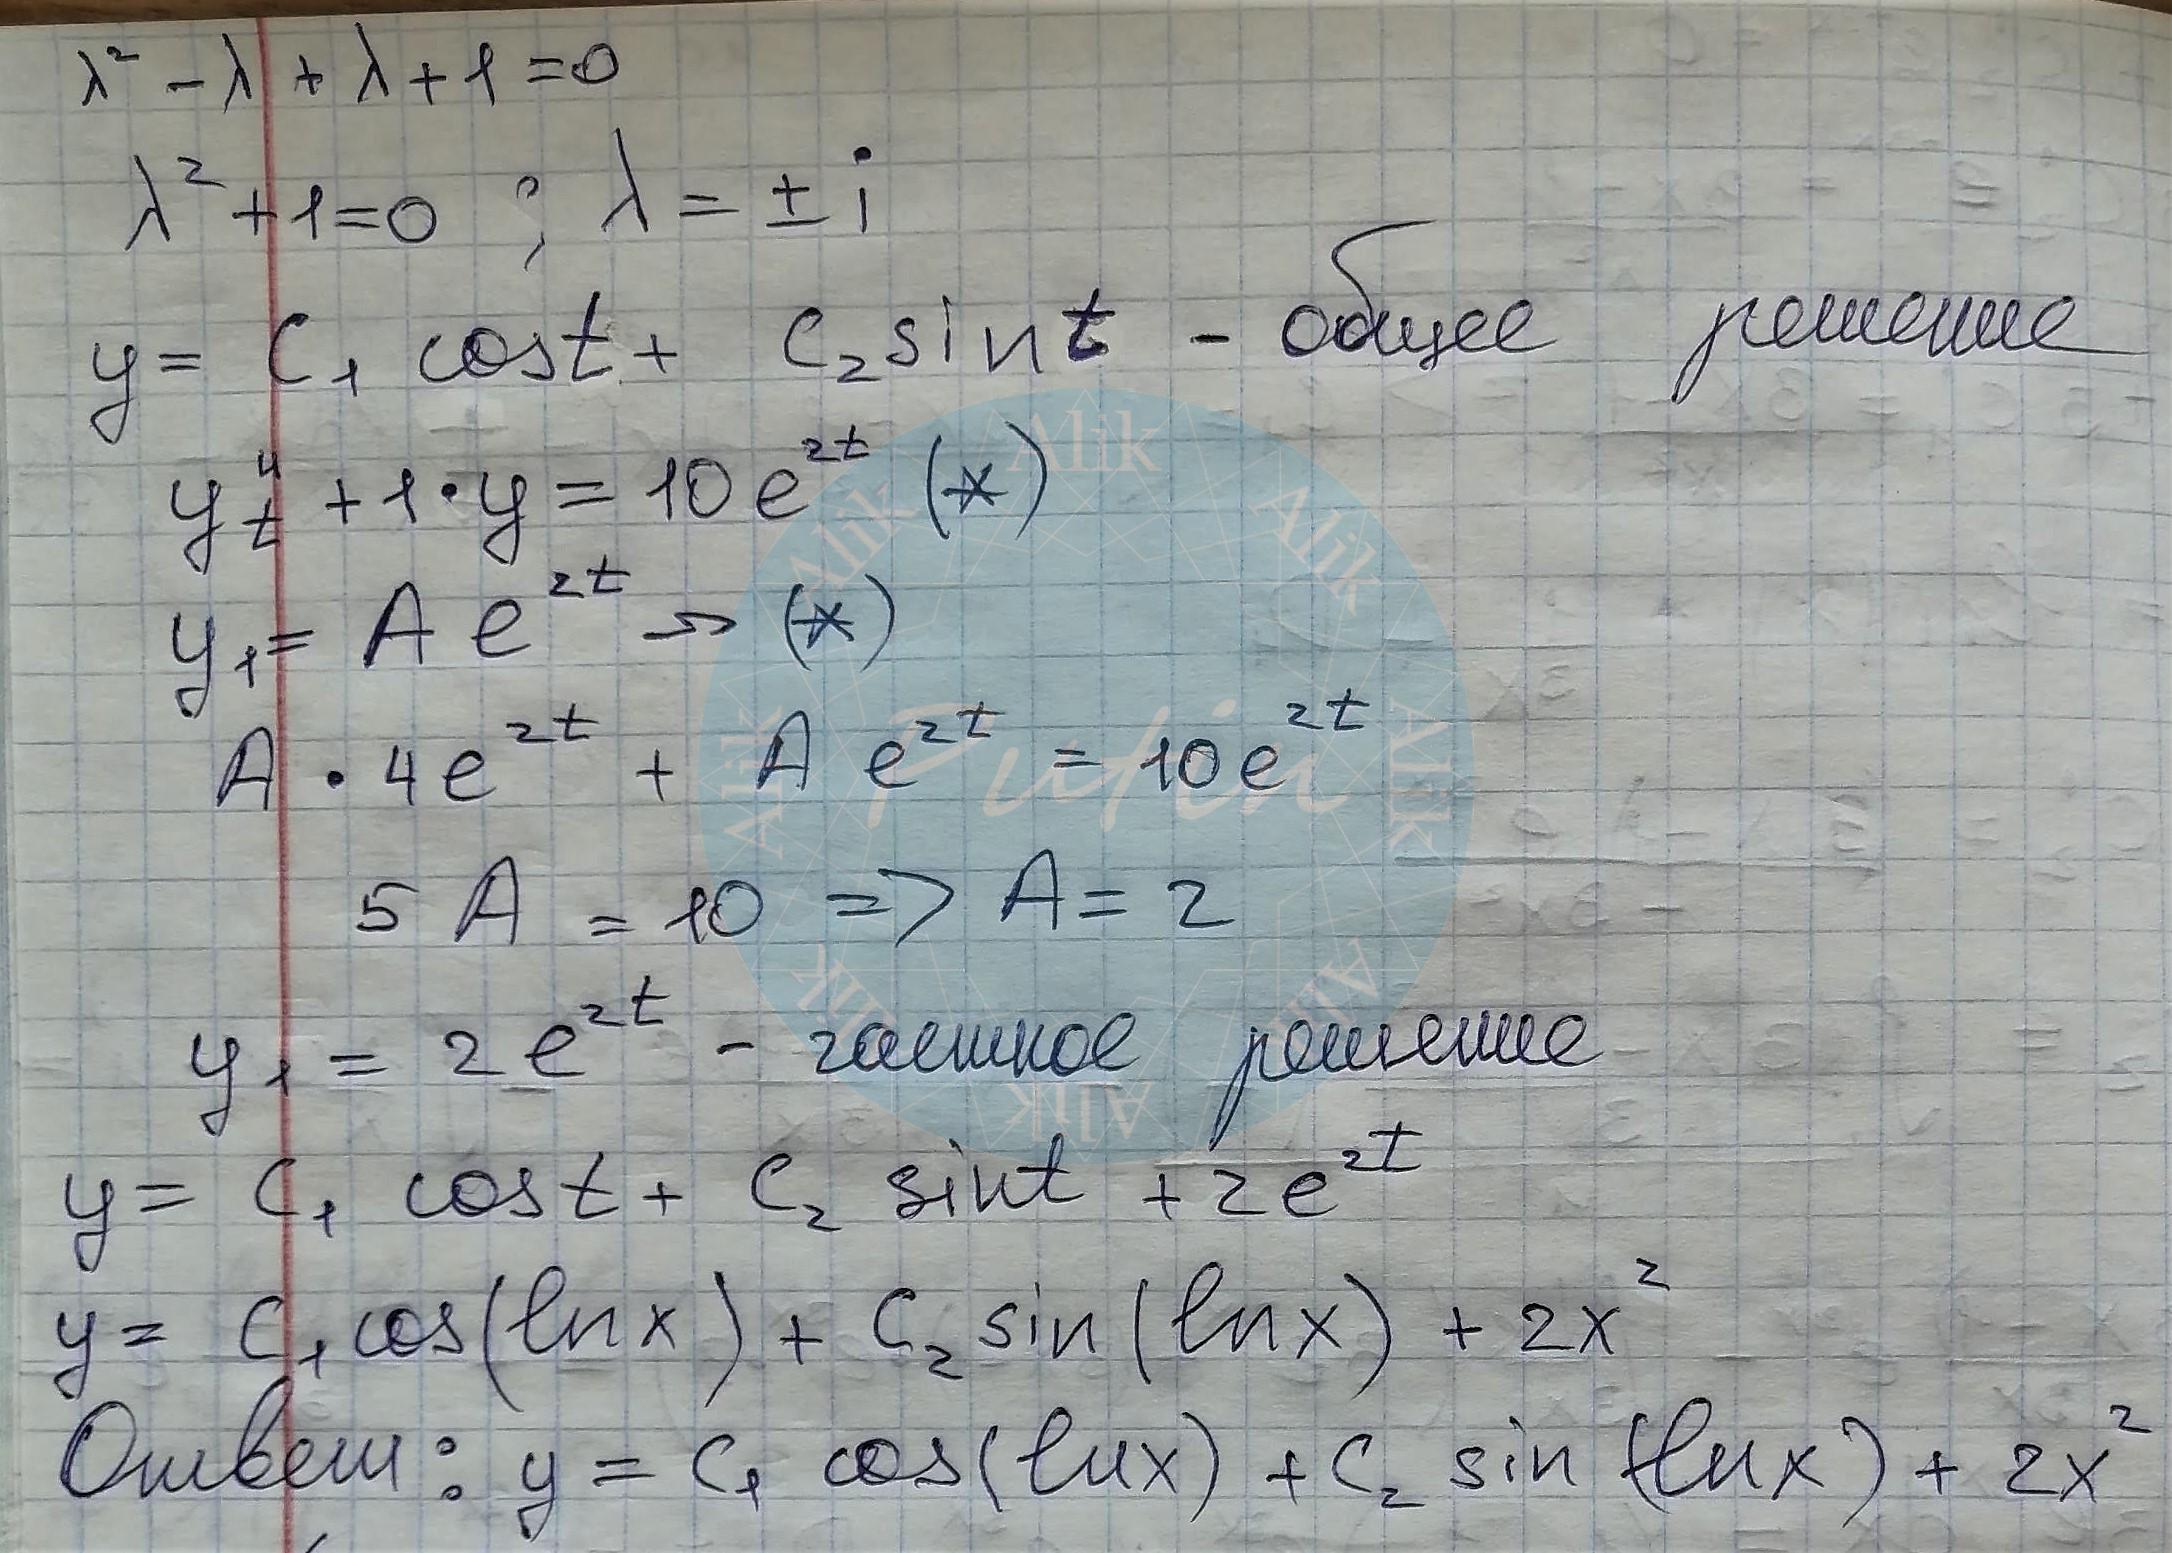 λ² - λ + λ + 1 = 0
λ² + 1 = 0 ; λ = ± i
y = C₁ cost + C₂ sint - общее решение
y″ₜ + 1·y = 10e²ᵗ (*)
y₁ = A e²ᵗ → (*)
A · 4e²ᵗ + A e²ᵗ = 10e²ᵗ
5 A = 10 => A = 2
y₁ = 2e²ᵗ - частное решение
y = C₁ cost + C₂ sint + 2e²ᵗ
y = C₁ cos(lnx) + C₂ sin(lnx) + 2x²
Ответ: y = C₁ cos(lnx) + C₂ sin(lnx) + 2x²
Alik Alik Alik Alik Alik Alik Alik Alik
Putin